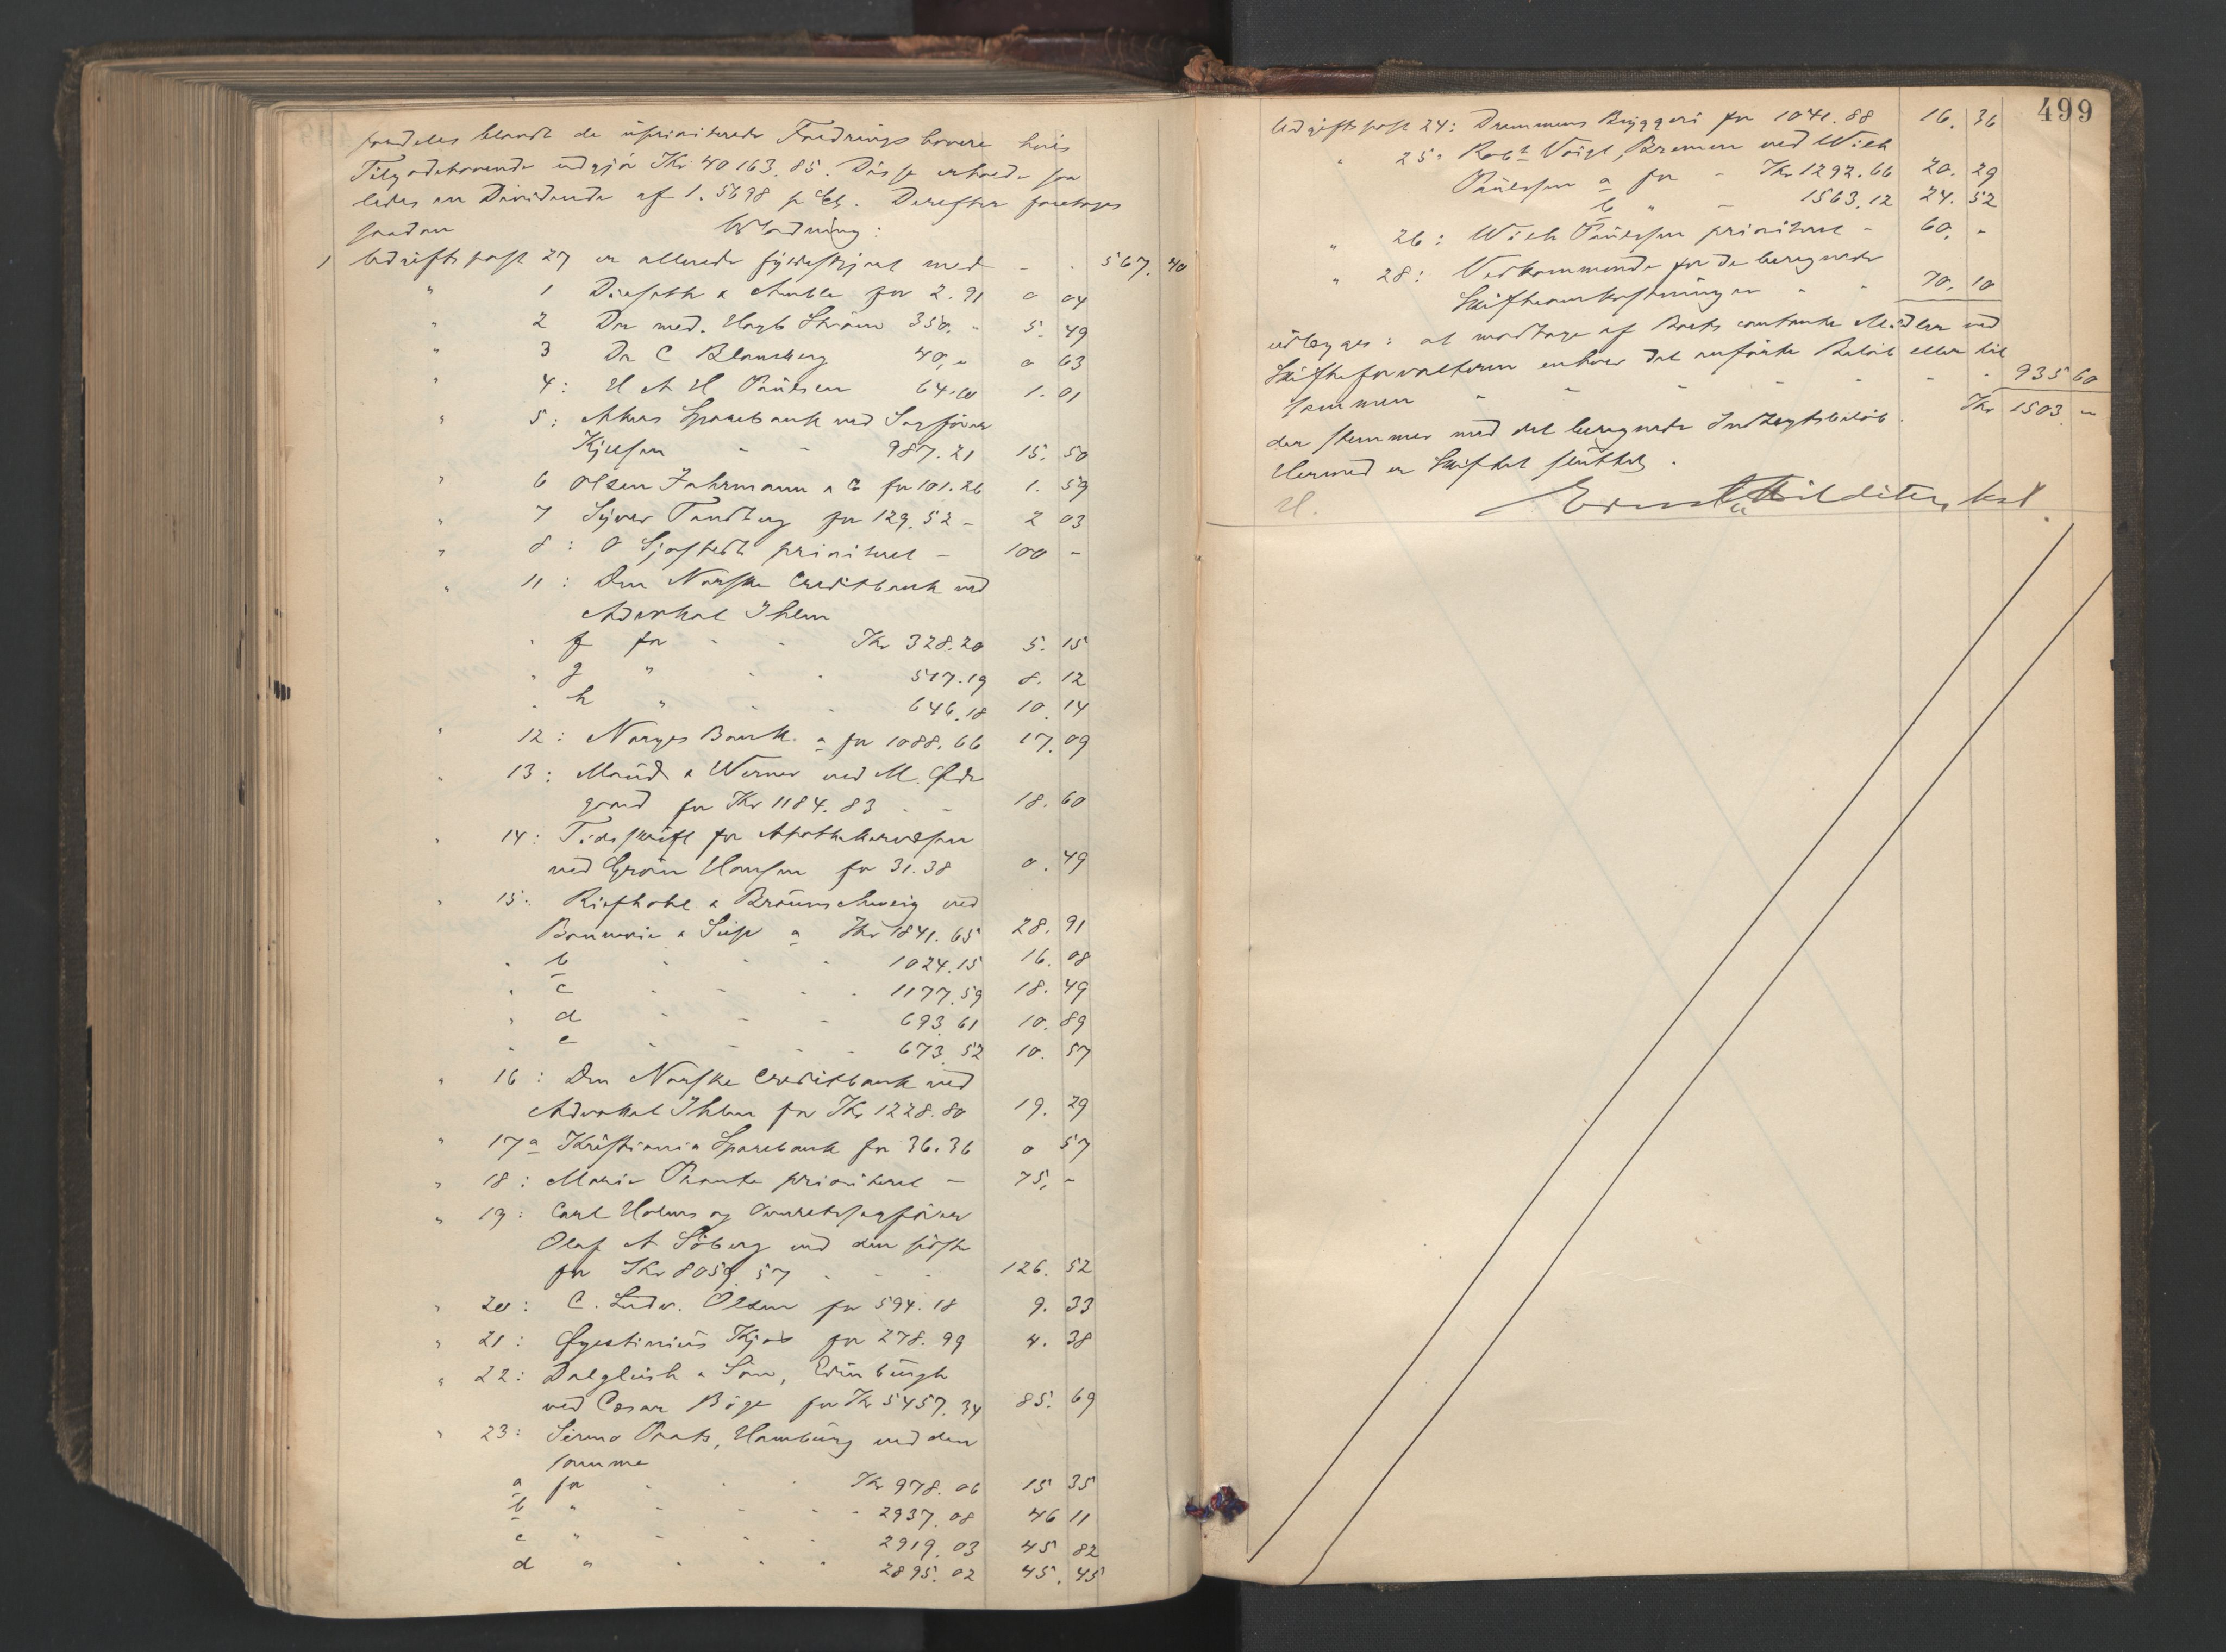 fordeles blandt de uprioriterede Fordringshavere hvis
Tilgodehavende udgjør Kr 40163.85. Disse erholde saa
ledes en Dividende af 1.5698 p Ct. Derefter foretages
saadan Udlodning:
1 Udgiftspost 27 er allerede fyldestgjort med - - 567.40
" 1 Dieseth & for 2.91 0 04
" 2 Dr med. Hagb Strøm 350. - 5. 49
" 3 Dr C Blomberg 40, " 0 63
" 4: H A H Paulsen 64.00 1. 01
" 5: Akers Sparebank ved Sagfører
- - 987.21 15. 50
" 6 Olsen Fahrmann & C for 101.26 1. 59
" 7 Syver Tandberg for 129.52 - 2 03
" 8: O Sjøstedt prioriteret - 100 -
" 11: Den Norske Creditbank ved
Advokat Ihlen
" f for - - Kr 328.20 5. 15
" g " - - 517.19 8. 12
" h " - - 646.18 10. 14
" 12: Norges Bank. a for 1088.66 17. 09
" 13: Maud & Werner ved M. Øde
gaard for Kr 1184.83 - - 18. 60
" 14: Tidsskrift for Apothekervæsen
ved Grøn Hansen for 31.38 0. 49
" 15: & Braunschweig ved
Bonnevie & a Kr 1841.65 28. 91
" b - - - 1024.15 16. 08
" c - - - 1177.59 18. 49
" d - - - 693.61 10. 89
" e - - - 673.52 10. 57
" 16: Den Norske Creditbank ved
Advokat Ihlen for Kr 1228.80 19. 29
" 17a Kristiania Sparebank for 36.36 0 57
" 18: Marie prioriteret - 75, -
" 19: Carl Holms og Overretssagfører
Olaf A Søberg ved den sidste
for Kr 8059.57 - - - 126. 52
" 20: C. Ludv. Olsen for 594.18 9. 33
" 21: Kjos for 278.99 4. 38
" 22: Dalgliesh & Søn, Edinburgh
ved Cæsar Bøge for Kr 5457.34 85. 69
" 23: Paats, Hamburg ved den
samme
a for - - Kr 978.06 15 35
b " - - - 2937.08 46 11
c " - - - 2919.03 45 82
d " - - - 2895.02 45. 45
499
Udgiftspost 24: Drammens Bryggeri for 1041.88 16. 36
" 25: Robt Voigt, Bremen ved Wilh
Paulssen a for - Kr 1292.66 20. 29
b " - 1563.12 24. 52
" 26: Wilh Paulssen prioriteret - 60, -
" 28: Vedkommende for de beregnede
Skifteomkostninger - - 70, 10
udlægges: at modtage af Boets contante Midler ved
Skifteforvalteren enhver det anførte Beløb eller til
sammen - - - - - - 935 60
Kr 1503 -
der stemmer med det beregnede Indtægtsbeløb.
Hermed er Skiftet sluttet.